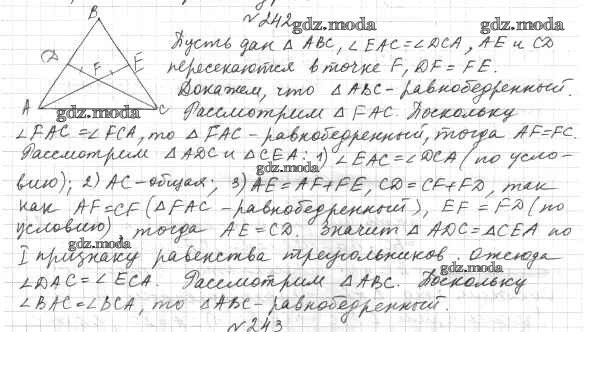 №242
gdz.moda gdz.moda
B
D F E
A C
Пусть дан △ ABC, ∠EAC=∠DCA, AE и CD
пересекаются в точке F, DF = FE.
Докажем, что △ABC - равнобедренный.
gdz.moda
Рассмотрим △ FAC. Поскольку
∠FAC=∠FCA, то △ FAC - равнобедренный, тогда AF=FC.
gdz.moda
Рассмотрим △ADC и △CEA: 1) ∠EAC=∠DCA (по усло-
вию); 2) AC - общая; 3) AE = AF+FE, CD = CF+FD, так
как AF=CF (△FAC - равнобедренный), EF = FD (по
условию), тогда AE = CD. Значит △ ADC=△CEA по
gdz.moda
I признаку равенства треугольников. Отсюда
gdz.moda
∠DAC=∠ECA. Рассмотрим △ABC. Поскольку
∠BAC=∠BCA, то △ABC - равнобедренный.
№243